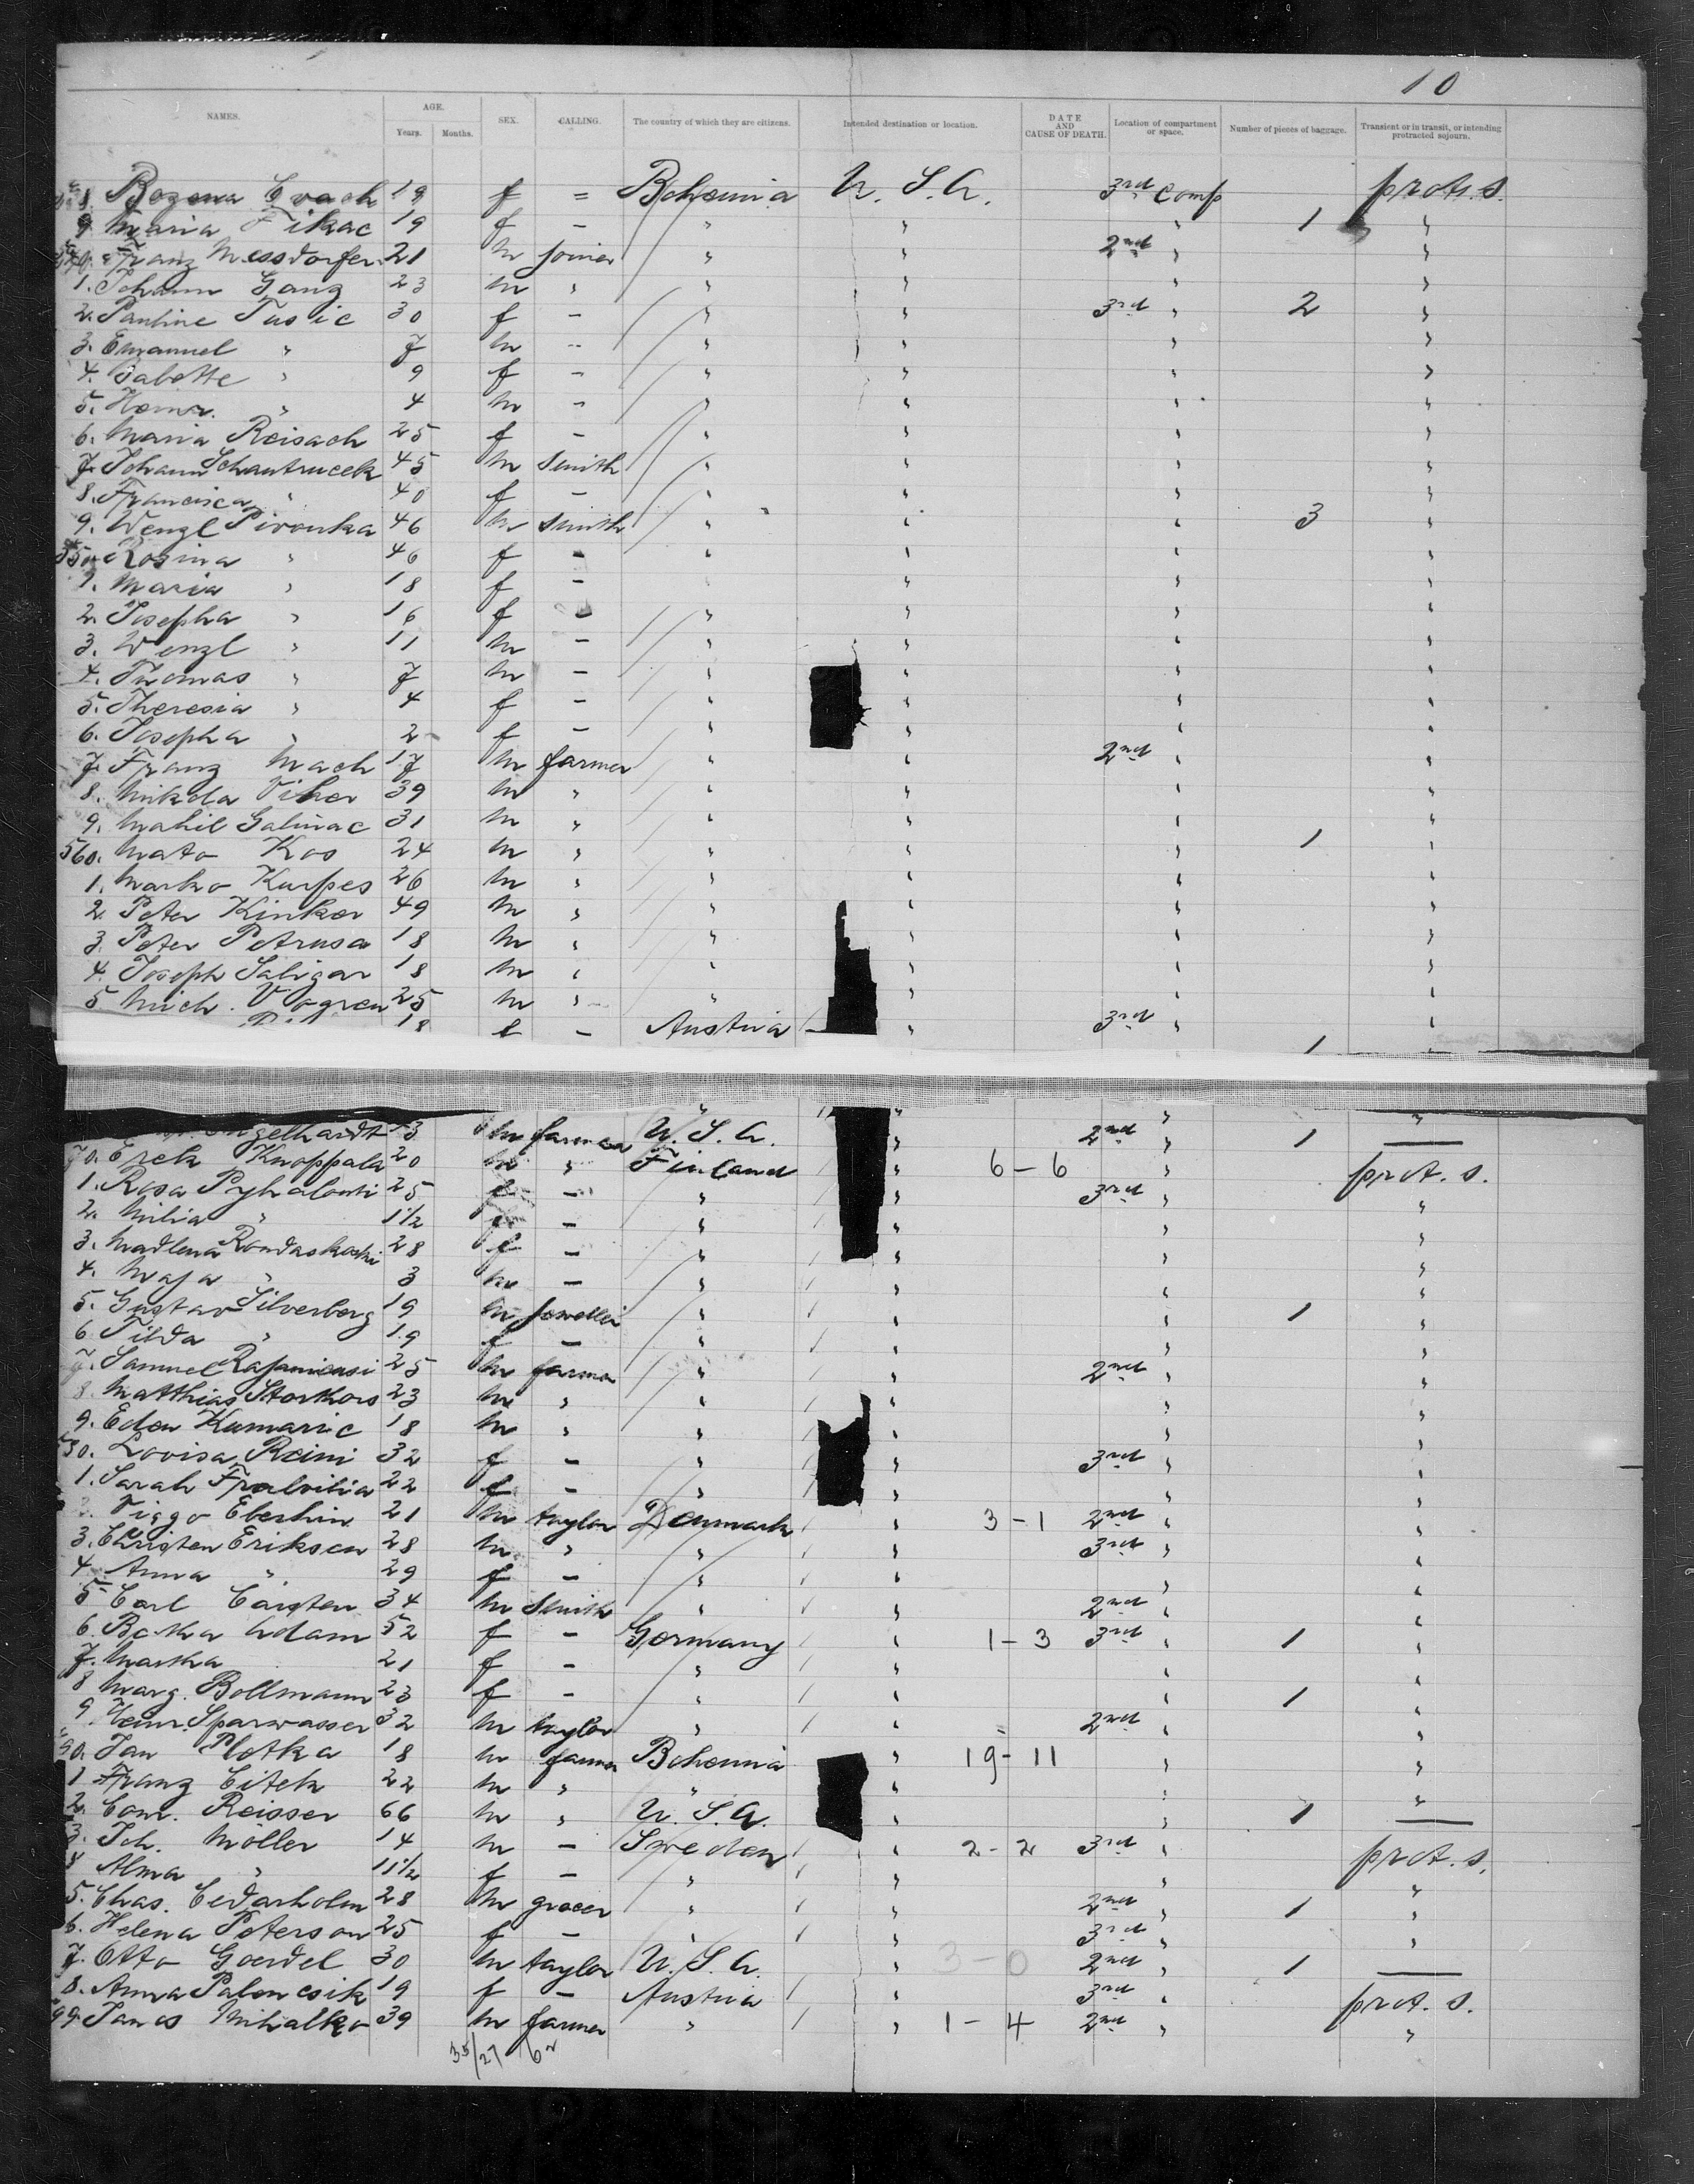 10
NAMES. AGE. Years. Months. SEX. CALLING. The country of which they are citizens. Intended destination or location. DATE AND CAUSE OF DEATH. Location of compartment or space. Number of pieces of baggage. Transient or in transit, or intending protracted sojourn.
8. Bozena 19 f = Bohemia U. S. A. 3rd Comp prot. s.
9. Maria Fikac 19 f - " " " 1 "
Franz Messdorfer 21 m joiner " " 2nd " "
1. Johann Ganz 23 m " " " " "
2. Pauline Tusic 30 f - " " 3rd " 2 "
3. Emanuel " 7 m - " " " "
4. Babette " 9 f - " " " "
5. Heinr. " 4 m - " " " "
6. Maria Reisach 25 f - " " " "
7. Johann Schantrucek 45 m smith " " " "
8. Francisca " 40 f - " " " "
9. Wenzl Pivonka 46 m smith " " " 3 "
550. Rosina " 46 f - " " " "
1. Maria " 18 f - " " "
2. Josepha " 16 f - " " " "
3. Wenzl " 11 m - " " " "
4. Thomas " 7 m - " " " "
5. Theresia " 4 f - " " " "
6. Josepha " 2 f - " " " "
7. Franz Mach 17 m farmer " " 2nd " "
8. Nikola Viher 39 m " " " " "
9. Mahil Galinac 31 m " " " " "
560. Mato Kos 24 m " " " " 1 "
1. Marko Kurpes 26 m " " " " "
2. Peter Kinker 49 m " " " " "
3. Peter Petrusa 18 m " " " " "
4. Joseph Saligar 18 m " " " " "
5 Mich. Vogren 25 m " " " " "
18 f - Austria " 3rd " "
1 "
" " " "
Engelhardt 3 m farmer U. S. A. " 2nd " 1 —
70. Erek Knoppala 20 m " Finland " 6-6 " prot. s.
1. Rosa Pyhalonti 25 f - " " 3rd " "
2. Milia " 1 1/2 f - " " " "
3. Madlena Rondaskoski 28 f - " " " "
4. Maja " 3 m - " " " "
5. Gustav Silverberg 19 m jeweller " " " 1 "
6 Tilda " 19 f - " " " "
7. Samuel Rajaniensi 25 m farmer " " 2nd " "
8. Matthias Storkors 23 m " " " " "
9. Eden Kumaric 18 m " " " " "
80. Lovisa Reini 32 f - " " 3rd " "
1. Sarah 22 f - " " " "
2. Viggo Eberhin 21 m taylor Denmark " 3-1 2nd " "
3. Christen Eriksen 28 m " " " 3rd " "
4. Anna " 29 f - " " " "
5 Carl Carsten 34 m smith " " 2nd " "
6. Adam 52 f - Germany " 1-3 3rd " 1 "
7. Martha 21 f - " " " "
8 Marg. Bollmann 23 f - " " " 1 "
9 Heinr. Sparwasser 32 m taylor " " 2nd " "
90. Jan Plotka 18 m farmer Bohemia " 19-11 " "
1 Franz Citek 22 m " " " " "
2. Reisser 66 m " U. S. A. " " 1 —
3. Joh. Möller 14 m - Sweden " 2-2 3rd " prot. s.
4 Alma " 11 1/2 f - " " " "
5. Chas. Cedarholm 28 m grocer " " 2nd " 1 "
6. Helena Peterson 25 f - " " 3rd " "
7. Otto Goerdel 30 m taylor U. S. A. " 3-0 2nd " 1 —
8. Anna Palencsik 19 f - Austria " 3rd " prot. s.
99. Janos Mihalko 39 m farmer " " 1-4 2nd " "
35/27 62